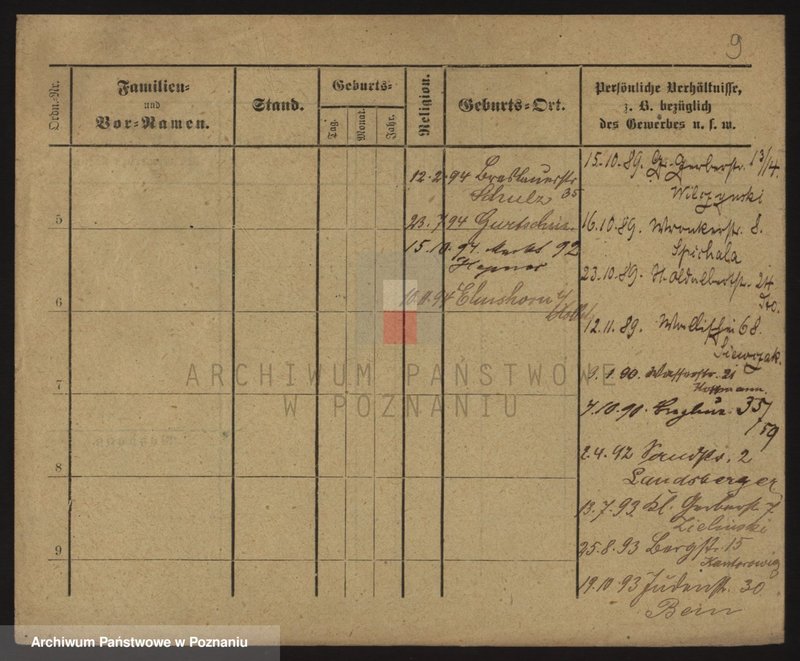 9
Ordn.-Nr.
Familien-
und
Vor-Namen.
Stand.
Geburts-
Tag.
Monat.
Jahr.
Religion.
Geburts-Ort.
Persönliche Verhältnisse,
z. B. bezüglich
des Gewerbes u. s. w.
12.2.94 Breslauerstr.
Schulz 35
23.7.94
15.10.94 Markt 92
10.11.94 Elmshorn
5
6
7
8
9
15.10.89. Gr. Gerberstr. 13/14.
Wilczynski
16.10.89. Wronkerstr. 8.
Spichala
23.10.89. St. Adalbertstr. 24
12.11.89. Wallischei 68.
Siewczak.
9.1.90. Wasserstr. 21
Hoffmann
7.10.90. 357
159
2.4.92 Sandstr. 2
Landsberger
13.7.93 Kl. Gerberstr. 7
Zielinski
25.8.93 Bergstr. 15
Kantorowicz
19.10.93 Judenstr. 30
Bein
ARCHIWUM PAŃSTWOWE
W POZNANIU
Archiwum Państwowe w Poznaniu